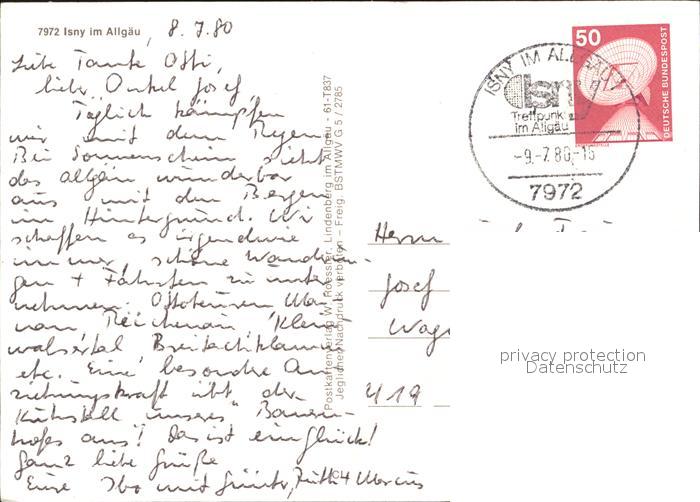 7972 Isny im Allgäu, 8.7.80
Liebe Tante Otti,
lieber Onkel Josef,
Täglich kämpfen
wir mit dem Regen.
Bei Sonnenschein sieht
das Allgäu wunderbar
aus mit den Bergen
im Hintergrund. Wir
schaffen es irgendwie
immer, schöne Wanderun-
gen + Fahrten zu unter
nehmen: Ottobeuren
Reichenau, Klein
walsertal Breitachklamm
etc. Eine besondere An
ziehungskraft übt der
Kuhstall unseres Bauern-
hofes aus! Das ist ein Glück!
Ganz liebe Grüße
Eure mit Günter, Ruth + Marcus
Postkartenverlag W. Roessler, Lindenberg im Allgäu - 61-T837
Jeglicher Nachdruck verboten – Freig. BSTMWV G 5 / 2785
50
DEUTSCHE BUNDESPOST
ISNY IM ALLGÄU 1
isny
Treffpunkt
im Allgäu
-9.-7.80.-16
7972
Herrn
Josef
Wag
419
privacy protection
Datenschutz